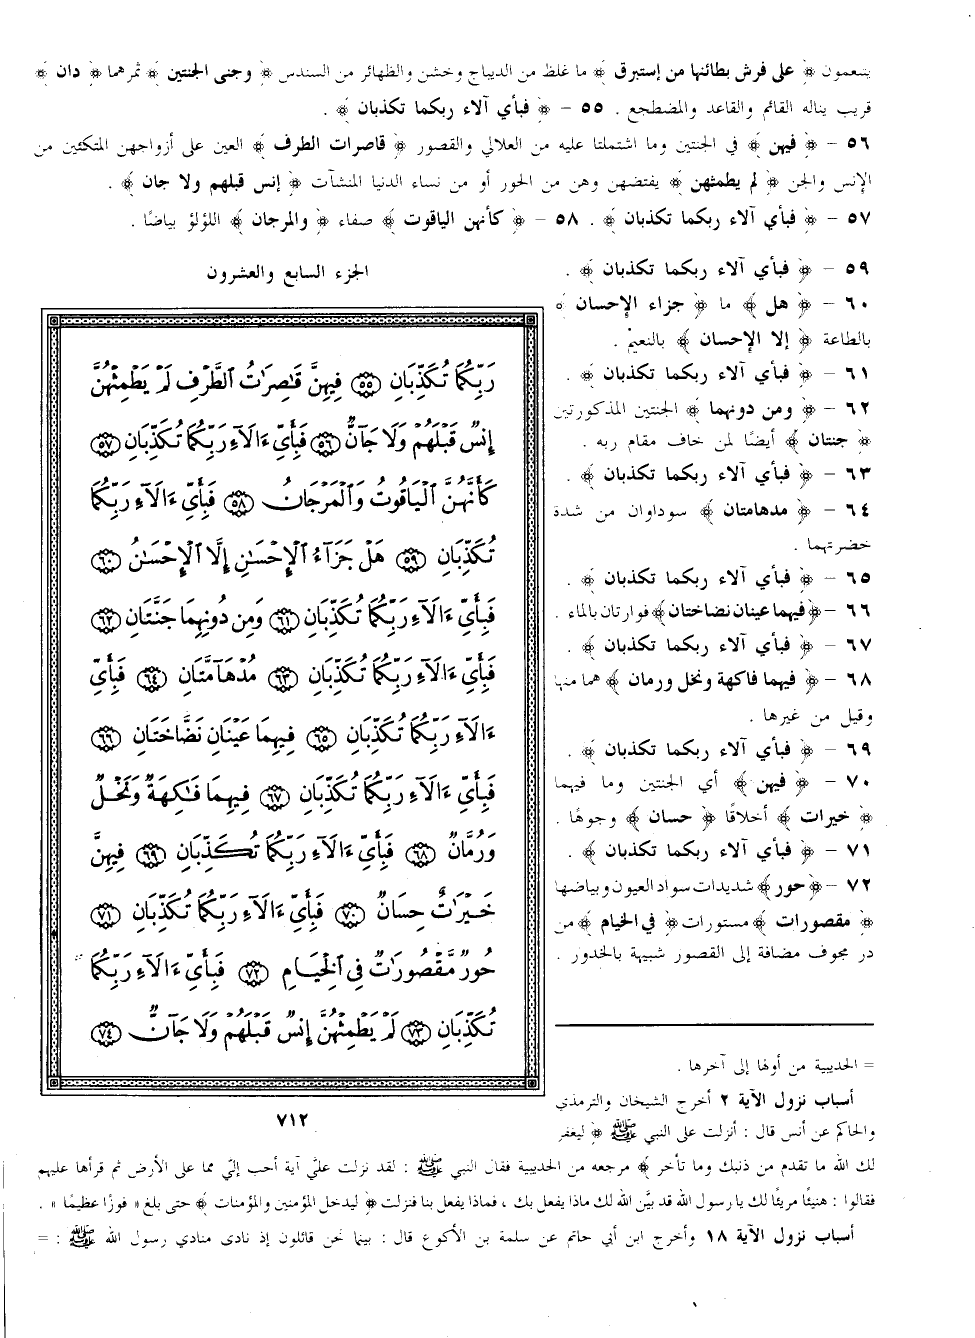 يتنعمون ﴿ على فرش بطائنها من إستبرق ﴾ ما غلظ من الديباج وخشن والظهائر من السندس ﴿ وجنى الجنتين ﴾ ثمرهما ﴿ دان ﴾
قريب يناله القائم والقاعد والمضطجع . ٥٥ – ﴿ فبأي آلاء ربكما تكذبان ﴾ .
٥٦ – ﴿ فيهن ﴾ في الجنتين وما اشتملتا عليه من العلالي والقصور ﴿ قاصرات الطرف ﴾ العين على أزواجهن المتكئين من
الإنس والجن ﴿ لم يطمثهن ﴾ يفتضهن وهن من الحور أو من نساء الدنيا المنشآت ﴿ إنس قبلهم ولا جان ﴾ .
٥٧ – ﴿ فبأي آلاء ربكما تكذبان ﴾ . ٥٨ – ﴿ كأنهن الياقوت ﴾ صفاء ﴿ والمرجان ﴾ اللؤلؤ بياضًا .
٥٩ – ﴿ فبأي آلاء ربكما تكذبان ﴾ .
٦٠ – ﴿ هل ﴾ ما ﴿ جزاء الإحسان ﴾
بالطاعة ﴿ إلا الإحسان ﴾ بالنعيم .
٦١ – ﴿ فبأي آلاء ربكما تكذبان ﴾ .
٦٢ – ﴿ ومن دونهما ﴾ الجنتين المذكورتين
﴿ جنتان ﴾ أيضًا لمن خاف مقام ربه .
٦٣ – ﴿ فبأي آلاء ربكما تكذبان ﴾ .
٦٤ – ﴿ مدهامتان ﴾ سوداوان من شدة
خضرتهما .
٦٥ – ﴿ فبأي آلاء ربكما تكذبان ﴾ .
٦٦ –﴿ فيهما عينان نضاختان﴾ فوارتان بالماء .
٦٧ – ﴿ فبأي آلاء ربكما تكذبان ﴾ .
٦٨ – ﴿ فيهما فاكهة ونخل ورمان ﴾ هما منها
وقيل من غيرها .
٦٩ – ﴿ فبأي آلاء ربكما تكذبان ﴾ .
٧٠ – ﴿ فيهن ﴾ أي الجنتين وما فيهما
﴿ خيرات ﴾ أخلاقًا ﴿ حسان ﴾ وجوهًا .
٧١ – ﴿ فبأي آلاء ربكما تكذبان ﴾ .
٧٢ –﴿ حور﴾ شديدات سواد العيون وبياضها
﴿ مقصورات ﴾ مستورات ﴿ في الخيام ﴾ من
در مجوف مضافة إلى القصور شبيهة بالخدور .
الجزء السابع والعشرون
رَبِّكُمَا تُكَذِّبَانِ ٥٥ فِيهِنَّ قَٰصِرَٰتُ ٱلطَّرْفِ لَمْ يَطْمِثْهُنَّ
إِنسٌ قَبْلَهُمْ وَلَا جَآنٌّ ٥٦ فَبِأَىِّ ءَالَآءِ رَبِّكُمَا تُكَذِّبَانِ ٥٧
كَأَنَّهُنَّ ٱلْيَاقُوتُ وَٱلْمَرْجَانُ ٥٨ فَبِأَىِّ ءَالَآءِ رَبِّكُمَا
تُكَذِّبَانِ ٥٩ هَلْ جَزَآءُ ٱلْإِحْسَٰنِ إِلَّا ٱلْإِحْسَٰنُ ٦٠
فَبِأَىِّ ءَالَآءِ رَبِّكُمَا تُكَذِّبَانِ ٦١ وَمِن دُونِهِمَا جَنَّتَانِ ٦٢
فَبِأَىِّ ءَالَآءِ رَبِّكُمَا تُكَذِّبَانِ ٦٣ مُدْهَآمَّتَانِ ٦٤ فَبِأَىِّ
ءَالَآءِ رَبِّكُمَا تُكَذِّبَانِ ٦٥ فِيهِمَا عَيْنَانِ نَضَّاخَتَانِ ٦٦
فَبِأَىِّ ءَالَآءِ رَبِّكُمَا تُكَذِّبَانِ ٦٧ فِيهِمَا فَٰكِهَةٌ وَنَخْلٌ
وَرُمَّانٌ ٦٨ فَبِأَىِّ ءَالَآءِ رَبِّكُمَا تُكَذِّبَانِ ٦٩ فِيهِنَّ
خَيْرَٰتٌ حِسَانٌ ٧٠ فَبِأَىِّ ءَالَآءِ رَبِّكُمَا تُكَذِّبَانِ ٧١
حُورٌ مَّقْصُورَٰتٌ فِى ٱلْخِيَامِ ٧٢ فَبِأَىِّ ءَالَآءِ رَبِّكُمَا
تُكَذِّبَانِ ٧٣ لَمْ يَطْمِثْهُنَّ إِنسٌ قَبْلَهُمْ وَلَا جَآنٌّ ٧٤
٧١٢
= الحديبية من أولها إلى آخرها .
أسباب نزول الآية ٢ أخرج الشيخان والترمذي
والحاكم عن أنس قال : أنزلت على النبي ﷺ ﴿ ليغفر
لك الله ما تقدم من ذنبك وما تأخر ﴾ مرجعه من الحديبية فقال النبي ﷺ : لقد نزلت عليَّ آية أحب إليّ مما على الأرض ثم قرأها عليهم
فقالوا : هنيئًا مريئًا لك يا رسول الله قد بيَّن الله لك ماذا يفعل بك ، فماذا يفعل بنا فنزلت ﴿ ليدخل المؤمنين والمؤمنات ﴾ حتى بلغ « فوزًا عظيمًا » .
أسباب نزول الآية ١٨ وأخرج ابن أبي حاتم عن سلمة بن الأكوع قال : بينما نحن قائلون إذ نادى منادي رسول الله ﷺ : =